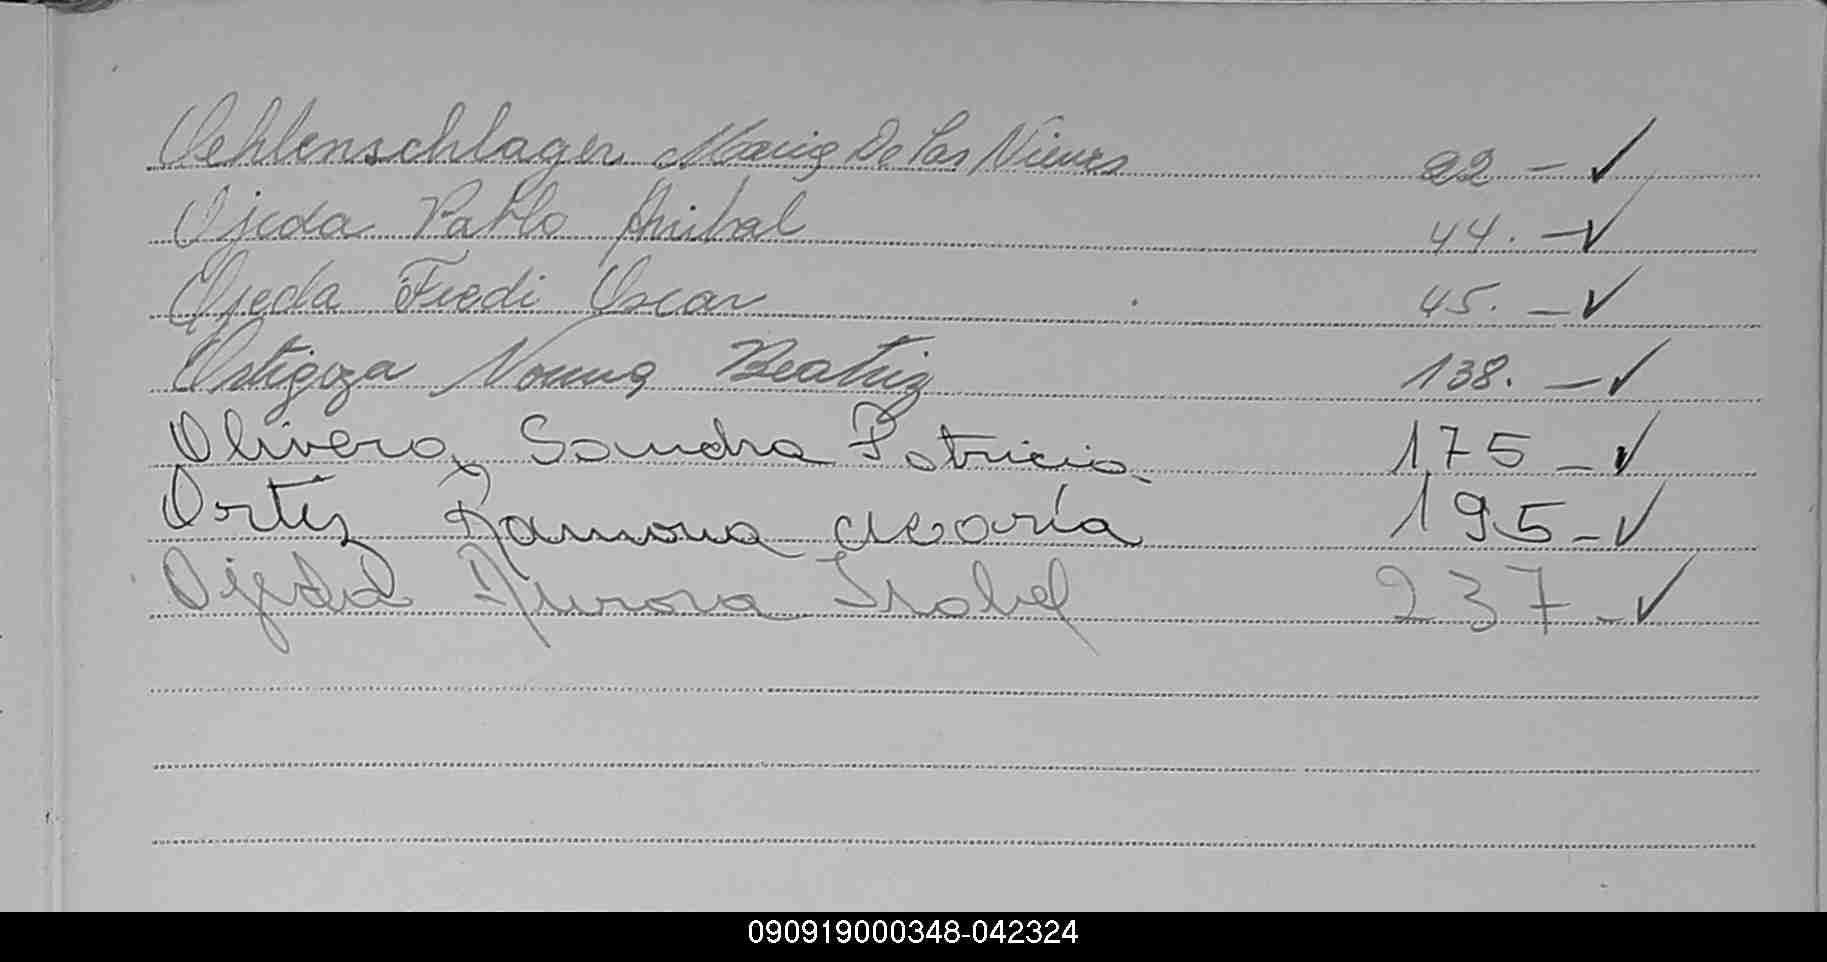 Oehlenschlager Maria De las Nieves 22 - ✓
Ojeda Pablo Anibal 44. - ✓
Ojeda Fredi Oscar 45. - ✓
Ortigoza Norma Beatriz 138. - ✓
Olivera, Sandra Patricia 175 - ✓
Ortiz Ramona María 195 - ✓
Ojeda Aurora Isabel 237 - ✓
090919000348-042324